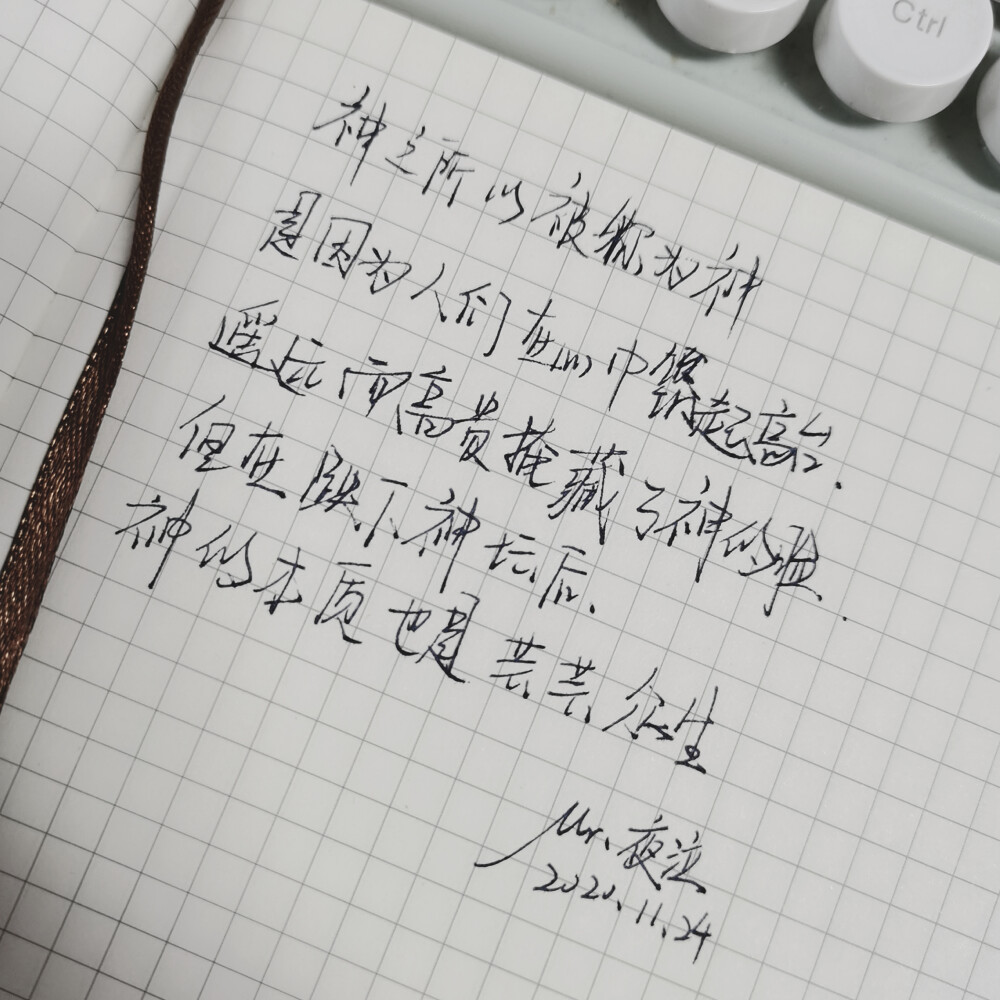 Ctrl
神之所以被称为神
是因为人们在心中筑起高台.
遥远而高贵掩藏了神的
但在跌下神坛后.
神的本质也是芸芸众生
Mr.夜泣
2020.11.24